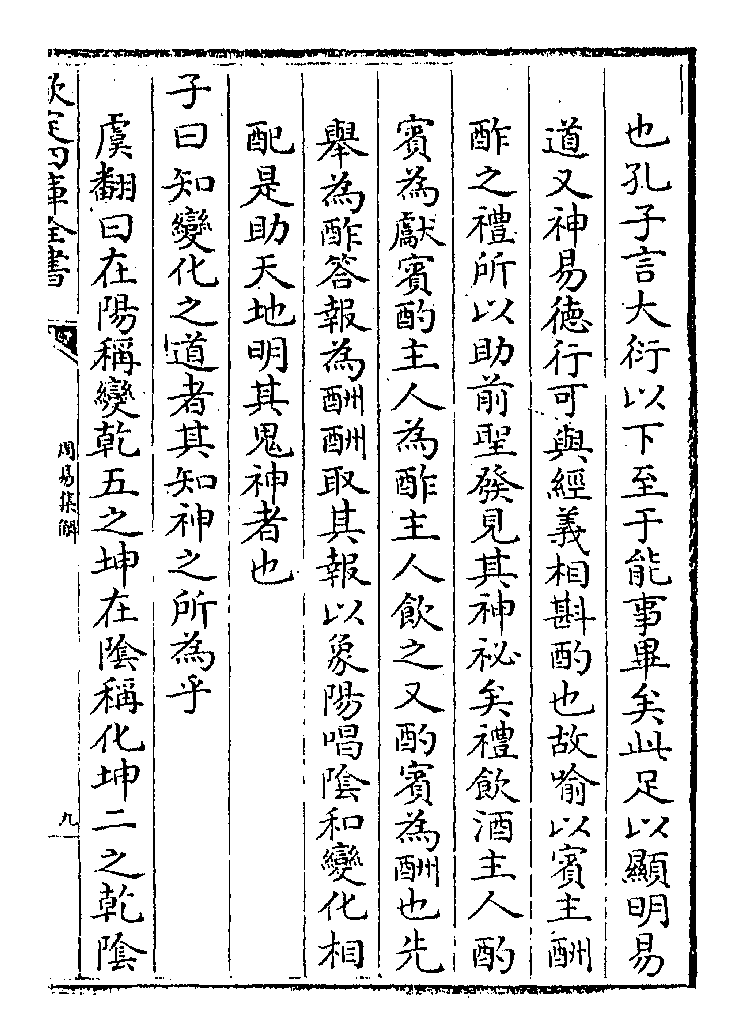 也孔子言大衍以下至于能事畢矣此足以顯明易
道又神易德行可與經義相斟酌也故喻以賓主酬
酢之禮所以助前聖發見其神祕矣禮飲酒主人酌
賓為獻賓酌主人為酢主人飲之又酌賓為酬也先
舉為酢答報為酬酬取其報以象陽唱陰和變化相
配是助天地明其鬼神者也
子曰知變化之道者其知神之所為乎
虞翻曰在陽稱變乾五之坤在陰稱化坤二之乾陰
欽定四庫全書
周易集解
九